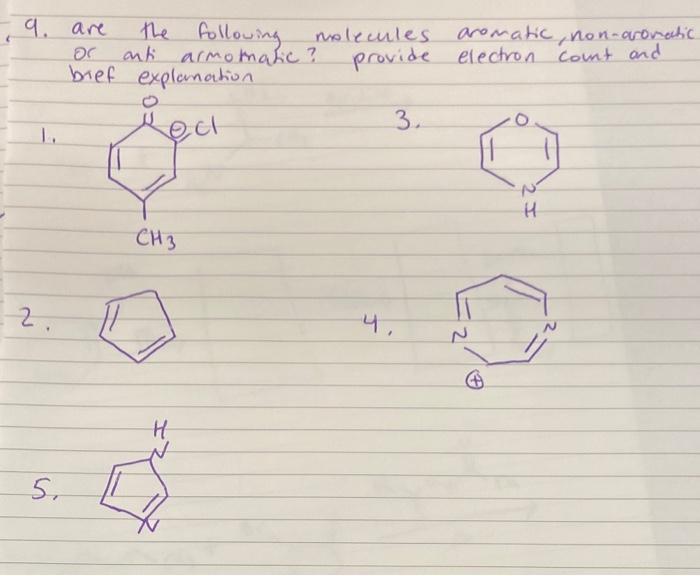 9. are the following molecules aromatic, non-aromatic
or anti armomatic? provide electron count and
brief explanation
1.
O
⊖ Cl
CH3
3.
O
N
H
2.
4.
N
N
⊕
5.
H
N
N